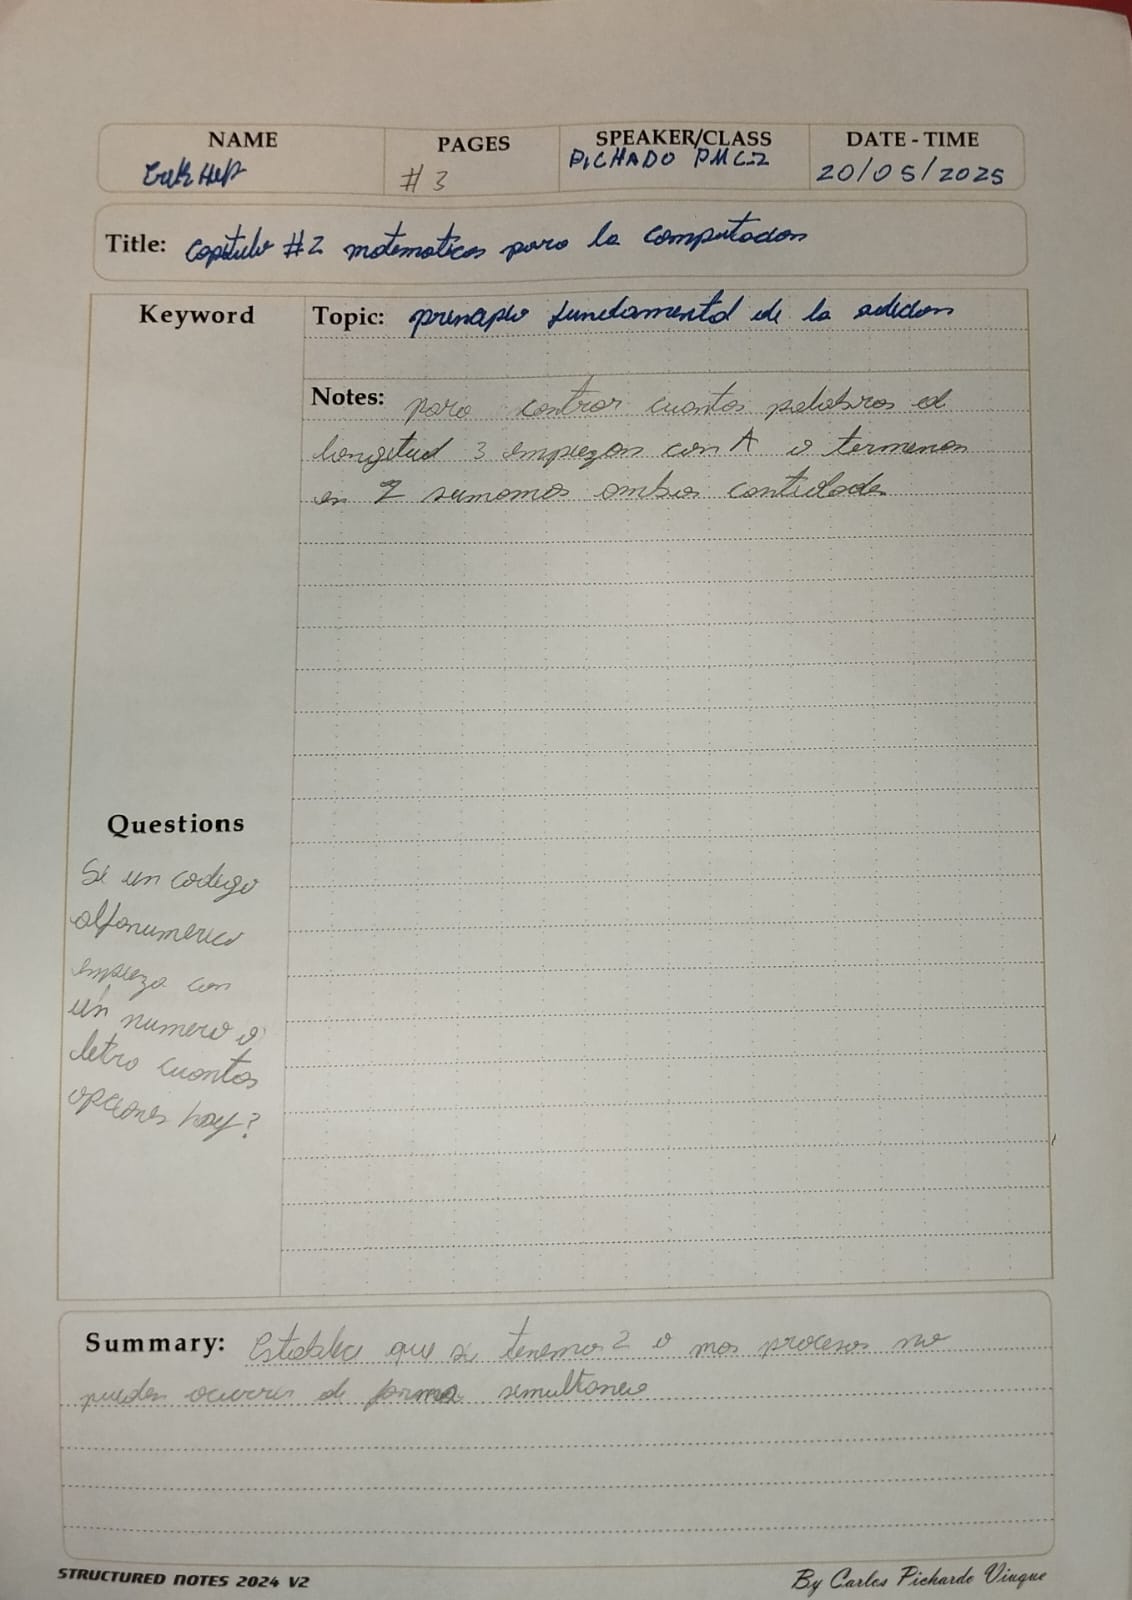 NAME
PAGES
SPEAKER/CLASS
DATE - TIME
Erik
# 3
PICHADO PMC-2
20/05/2025
Title: capitulo #2 matematicas para la computadora
Keyword
Topic: principio fundamental de la adicion
Notes: para contrar cuantas palabras de
longitud 3 empiezan con A o terminan
en Z sumamos ambas cantidades
Questions
Si un codigo
alfanumerico
empieza con
un numero o
letra cuantas
opciones hay?
Summary: Establece que si tenemos 2 o mas procesos no
pueden ocurrir de forma simultanea
STRUCTURED NOTES 2024 V2
By Carlos Pichardo Viuque